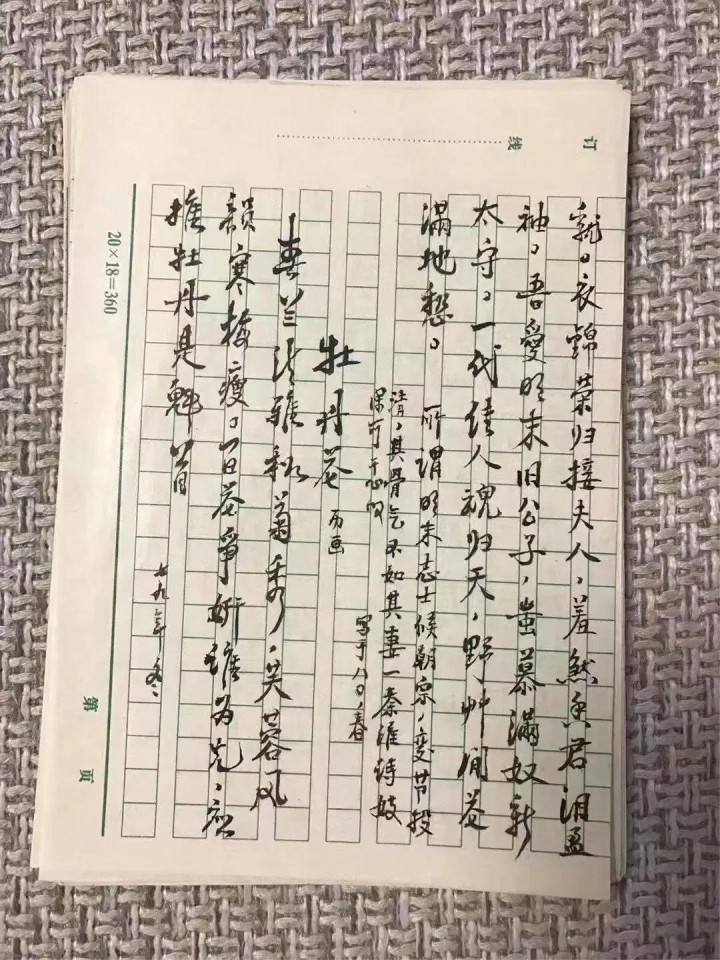 就。衣锦荣归接夫人，羞煞香君泪盈
袖。吾爱明末旧公子，岂慕满奴新
太守。一代佳人魂归天，野艸闲花
满地愁。
所谓明末志士候朝宗，变节投
清，其骨气不如其妻一秦淮诗妓
深可
写于八〇，春
牡丹花
春兰 秋菊 ，芙蓉风
韻寒梅瘦。百花争妍谁为先，应
推牡丹是魁首
七九年冬
订
线
第 页
20×18=360